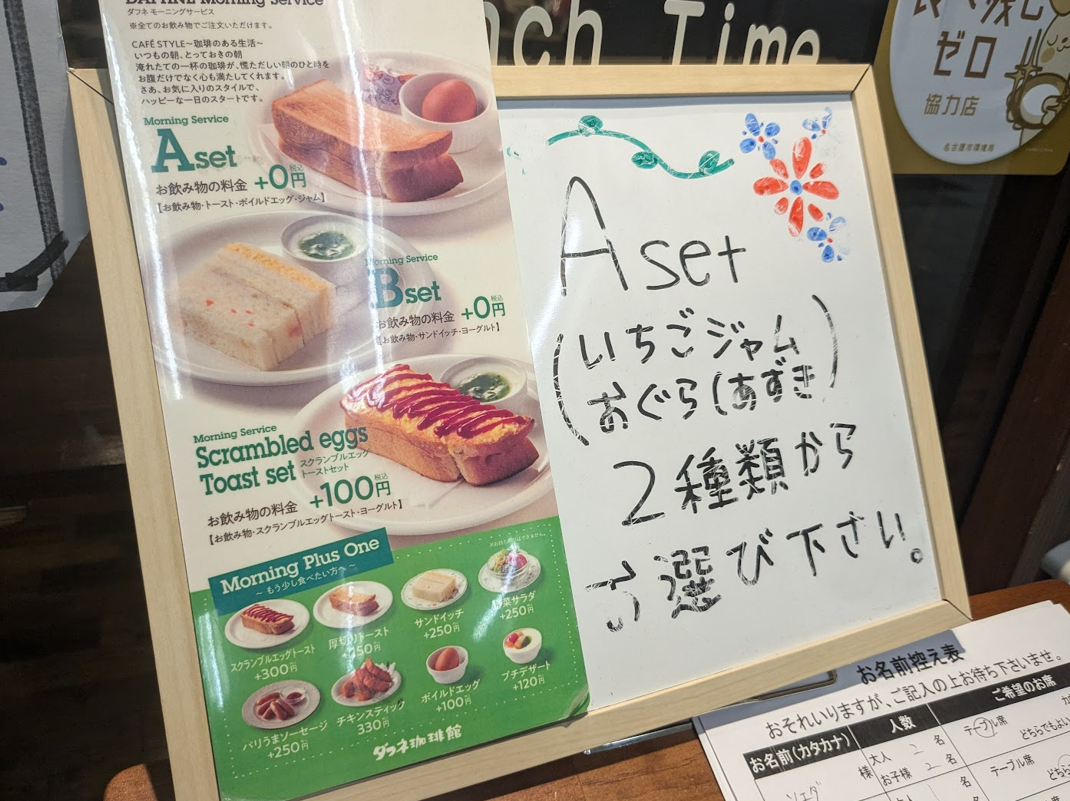 DAPHNE Morning Service
ダフネ モーニングサービス
※全てのお飲み物でご注文いただけます。
CAFÉ STYLE～珈琲のある生活～
いつもの朝、とっておきの朝
淹れたての一杯の珈琲が、慌ただしい朝のひとときを
お腹だけでなく心も満たしてくれます。
さあ、お気に入りのスタイルで、
ハッピーな一日のスタートです。
Morning Service
A set
お飲み物の料金 +0円 税込
【お飲み物・トースト・ボイルドエッグ・ジャム】
Morning Service
B set
お飲み物の料金 +0円 税込
【お飲み物・サンドイッチ・ヨーグルト】
Morning Service
Scrambled eggs
Toast set
スクランブルエッグ
トーストセット
お飲み物の料金 +100円 税込
【お飲み物・スクランブルエッグトースト・ヨーグルト】
Morning Plus One
～ もう少し食べたい方へ ～
スクランブルエッグトースト
+300円
厚切りトースト
サンドイッチ
+250円
野菜サラダ
+250円
パリうまソーセージ
+250円
チキンスティック
330円
ボイルドエッグ
+100円
プチデザート
+120円
ダフネ珈琲館
nch Time
A set
(いちごジャム
おぐら(あずき)
2種類から
お選び下さい。
食べ残し
ゼロ
協力店
名古屋市環境局
お名前控え表
おそれいりますが、ご記入の上お待ち下さいませ。
お名前(カタカナ)
人数
ご希望のお席
様
大人 2 名
お子様 2 名
テーブル席
どちらでもよい
ソエダ
様
大人
名
テーブル席
どちら